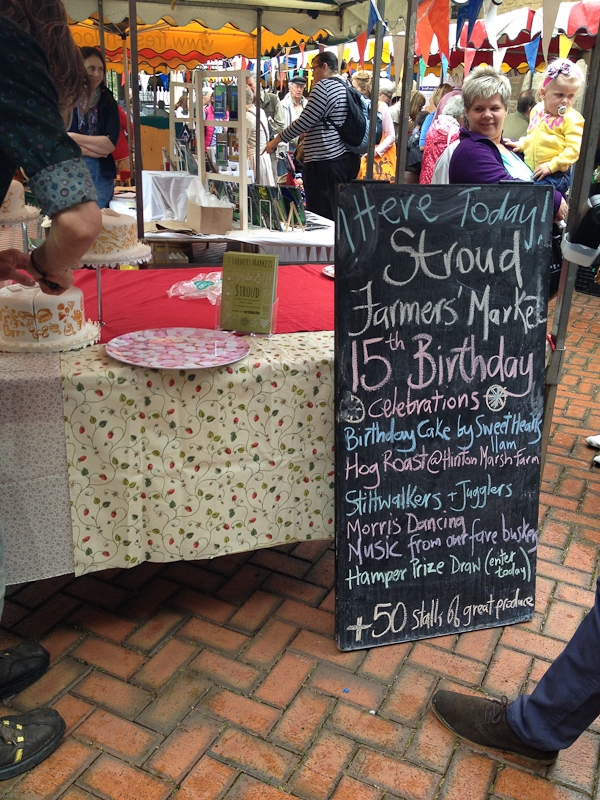 FARMERS MARKETS
STROUD
Here Today!
Stroud
Farmers' Market
15th Birthday
celebrations
Birthday Cake by Sweet Hearts
11am
Hog Roast @ Hinton Marsh Farm
Stiltwalkers + Jugglers
Morris Dancing
Music from our fave busker
Hamper Prize Draw (enter today)
+50 stalls of great produce